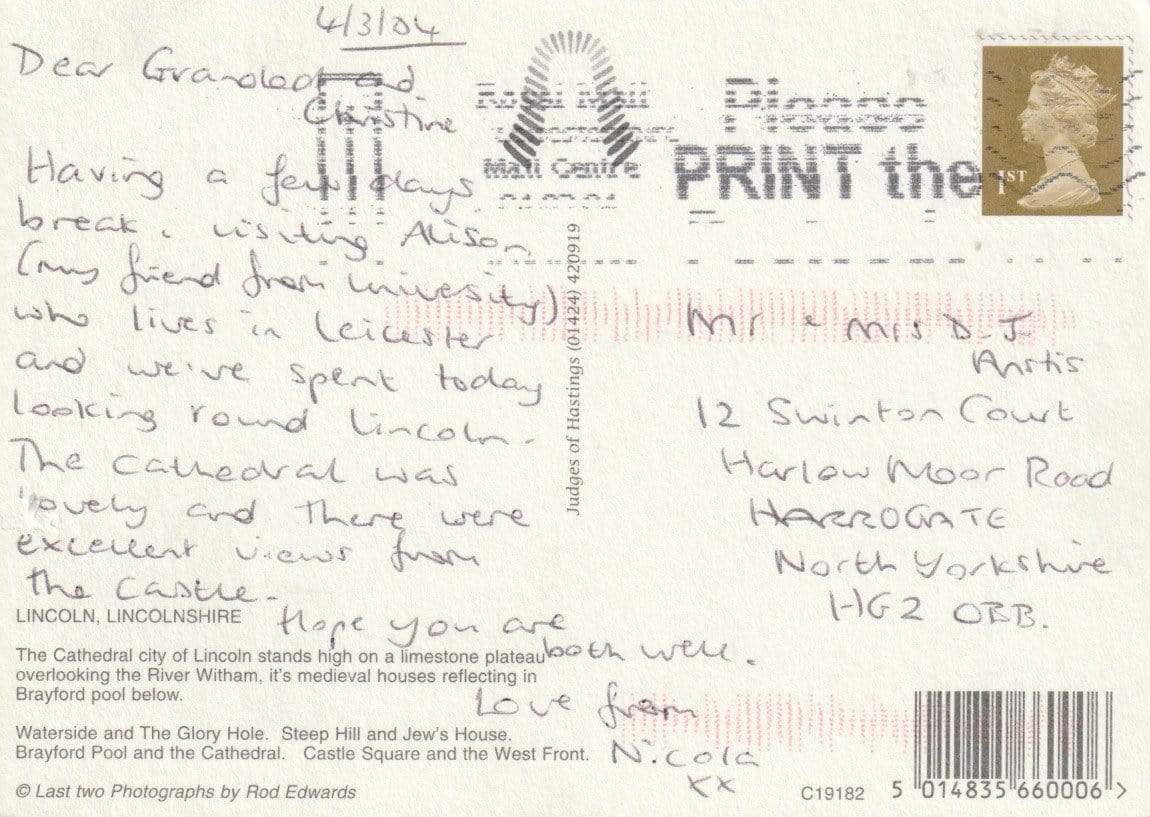 4/3/04
Dear Grandad and
Christine
Having a few days
break, visiting Alison
(my friend from university)
who lives in Leicester
and we've spent today
looking round Lincoln.
The Cathedral was
lovely and there were
excellent views from
the Castle.
Hope you are
both well.
Love from
Nicola
xx
LINCOLN, LINCOLNSHIRE
The Cathedral city of Lincoln stands high on a limestone plateau
overlooking the River Witham, it's medieval houses reflecting in
Brayford pool below.
Waterside and The Glory Hole. Steep Hill and Jew's House.
Brayford Pool and the Cathedral. Castle Square and the West Front.
© Last two Photographs by Rod Edwards
Judges of Hastings (01424) 420919
Royal Mail
Mail Centre
Please
PRINT the
1ST
Mr & Mrs D. J.
Anstis
12 Swinton Court
Harlow Moor Road
HARROGATE
North Yorkshire
HG2 0BB.
C19182
5 014835 660006 >